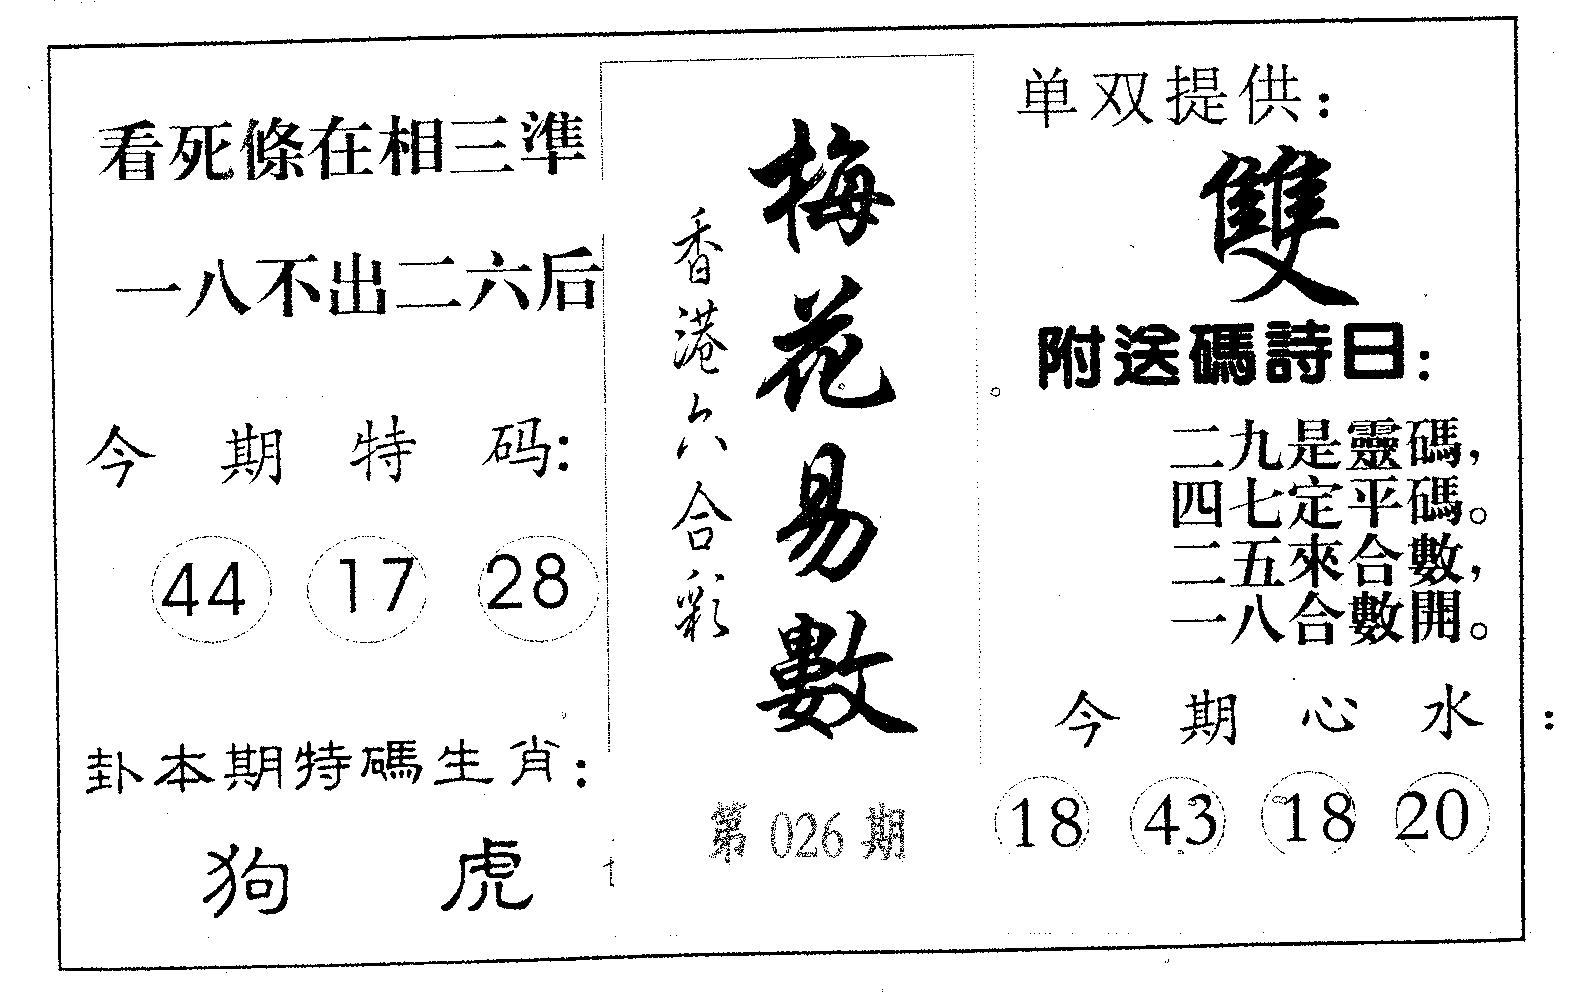 看死條在相三準
一八不出二六后
今期特码:
44 17 28
卦本期特碼生肖:
狗 虎
梅花易數
香港六合彩
第026期
单双提供:
雙
附送碼詩曰:
二九是靈碼,
四七定平碼。
二五來合數,
一八合數開。
今期心水:
18 43 18 20